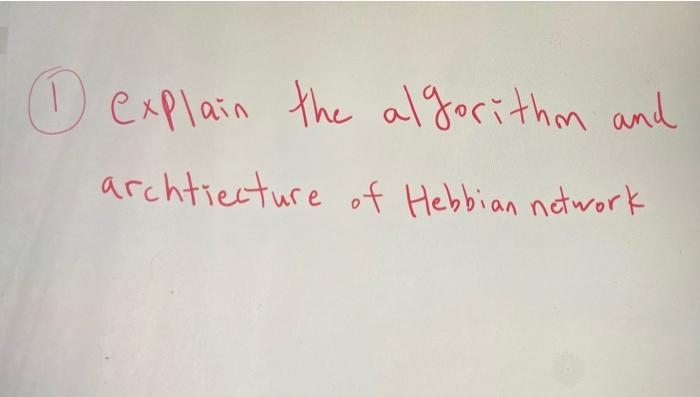 ① explain the algorithm and
archtiecture of Hebbian network